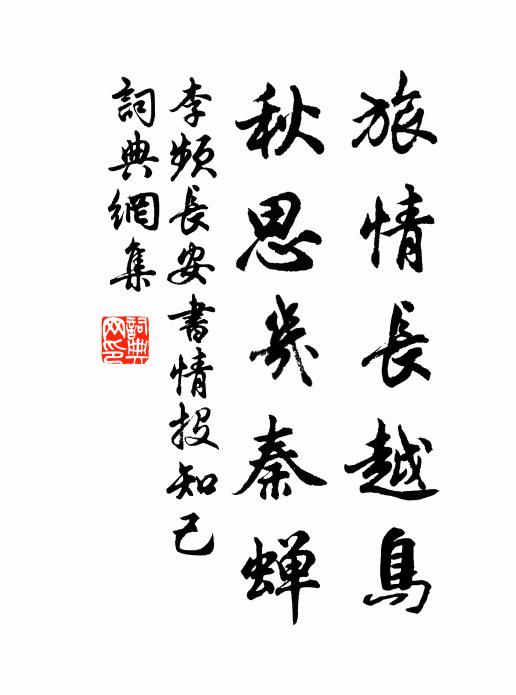 旅情長越鳥
秋思幾秦蟬
李頻長安書情投知己
詞典網集
詞典網印